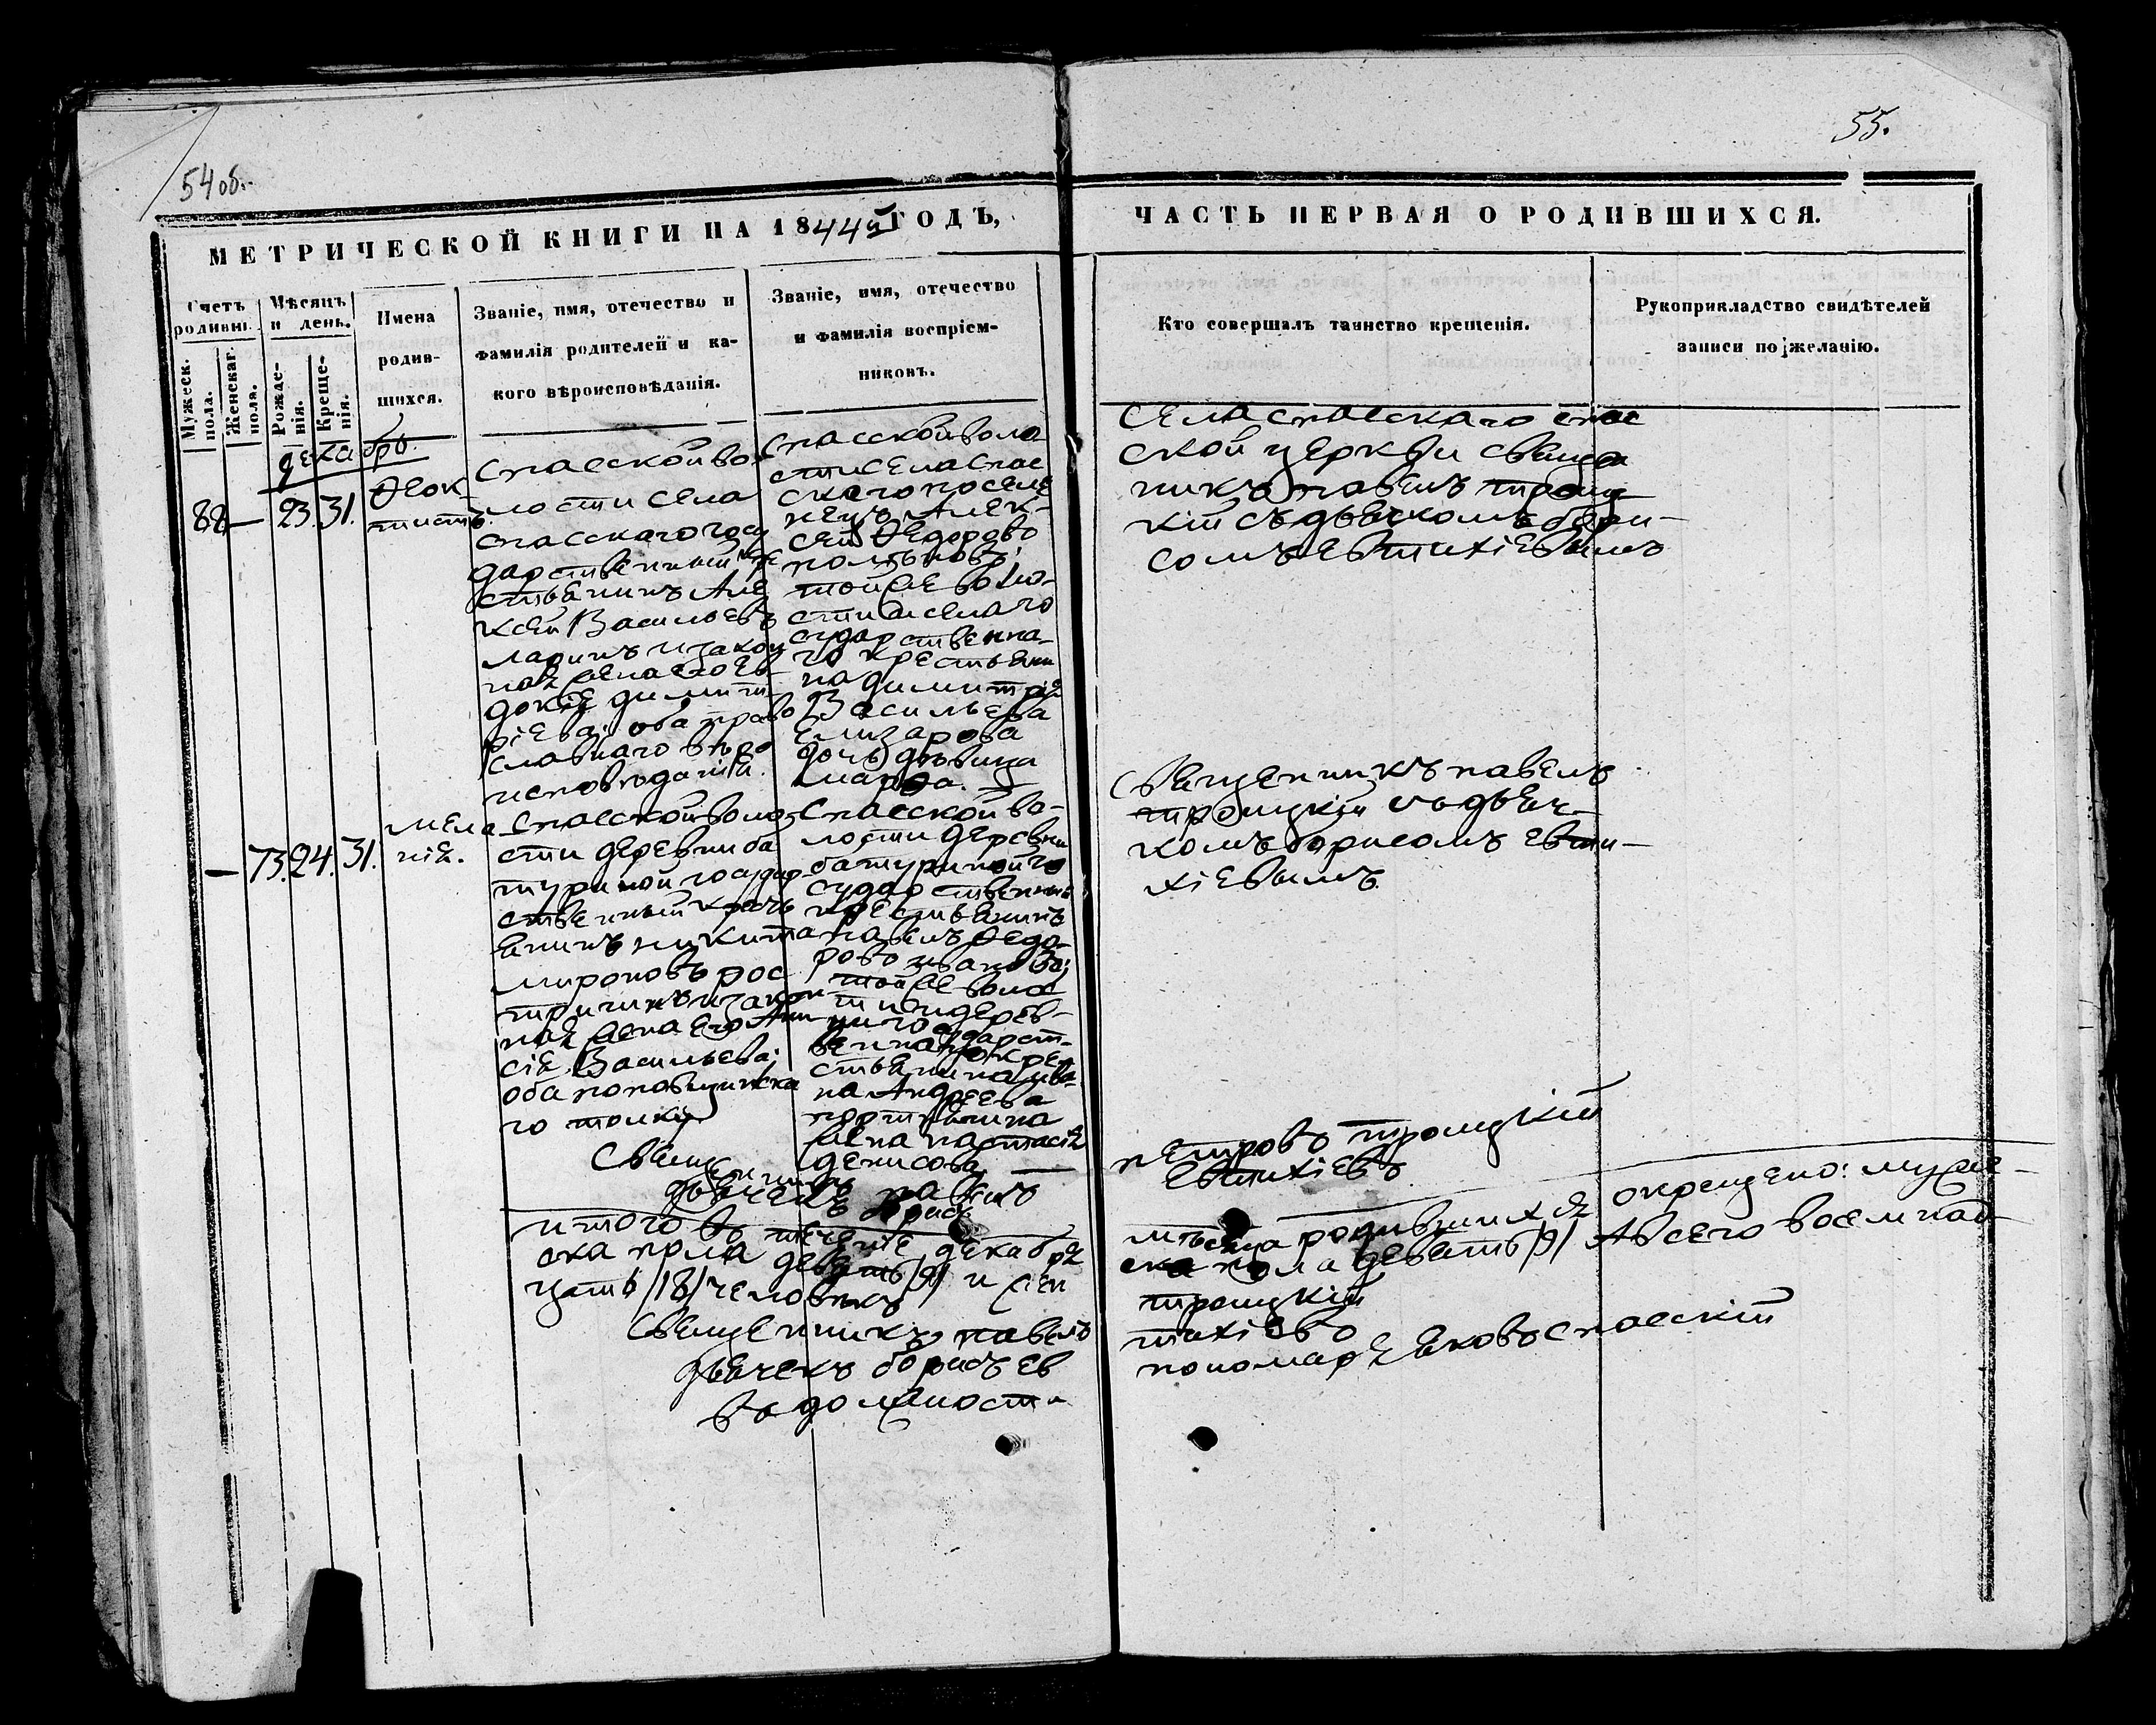 54 об.
55.
МЕТРИЧЕСКОЙ КНИГИ НА 1844й ГОДЪ,
ЧАСТЬ ПЕРВАЯ О РОДИВШИХСЯ.
Счетъ родивш.
Мужеск. пола.
Женскаг. пола.
Мѣсяцъ и день.
Рожде-
нія.
Креще-
нія.
Имена
родив-
шихся.
Званіе, имя, отечество и
фамилія родителей и ка-
кого вѣроисповѣданія.
Званіе, имя, отечество
и фамилія воспріем-
никовъ.
Кто совершалъ таинство крещенія.
Рукоприкладство свидѣтелей
записи по желанію.
декабрь.
88 — 23. 31.
Ѳеок-
тистъ.
Спасской во-
лости села
Спасскаго госу
дарственный кре
стьянинъ Але
ксей Васильевъ
ларинъ и закон
ная жена его Ев
докія димит-
ріева; оба право
славнаго вѣро
исповѣданія.
Спасской воло
сти села Спас
скаго поселе
нецъ Алек-
сей Ѳедоровъ
той же воло-
сти и села го
сударственна-
го крестьяни
на димитрія
Васильева
Елизарова
дочь дѣвица
марѳа.
Села спасскаго спас
ской церкви священ
никъ павелъ троиц
кій съ дьячкомъ бори-
сомъ Евтихіевымъ
— 73. 24. 31.
мела
нія.
Спасской воло
сти деревни ба
туриной государ
ственный кресть
янинъ никита
мироновъ рос
тричинъ и закон
ная жена его Ани
сія Васильева;
оба поповщинска
го толку
Спасской во-
лости деревни
батуриной го
сударственный
крестьянинъ
павелъ Ѳедо-
ровъ ивановъ;
той же воло
сти и дерев-
ни государст-
веннаго кре-
стьянина ива-
на Андреева
жена настасія
денисова
Священникъ павелъ
троицкій съ дьяч-
комъ борисомъ Евти-
хіевымъ.
Священникъ павелъ
петровъ троицкій
дьячекъ борисъ
Евтихіевъ
итого въ теченіе декабря мѣсяца родившихся окрещено: муже-
ска пола девять /9/ и жен ска пола девять /9/ А всего восемнад-
цать /18/ человѣкъ
Священникъ павелъ троицкій
дьячекъ борисъ Ев тихіевъ
въ должности пономаря Яковъ спасскій